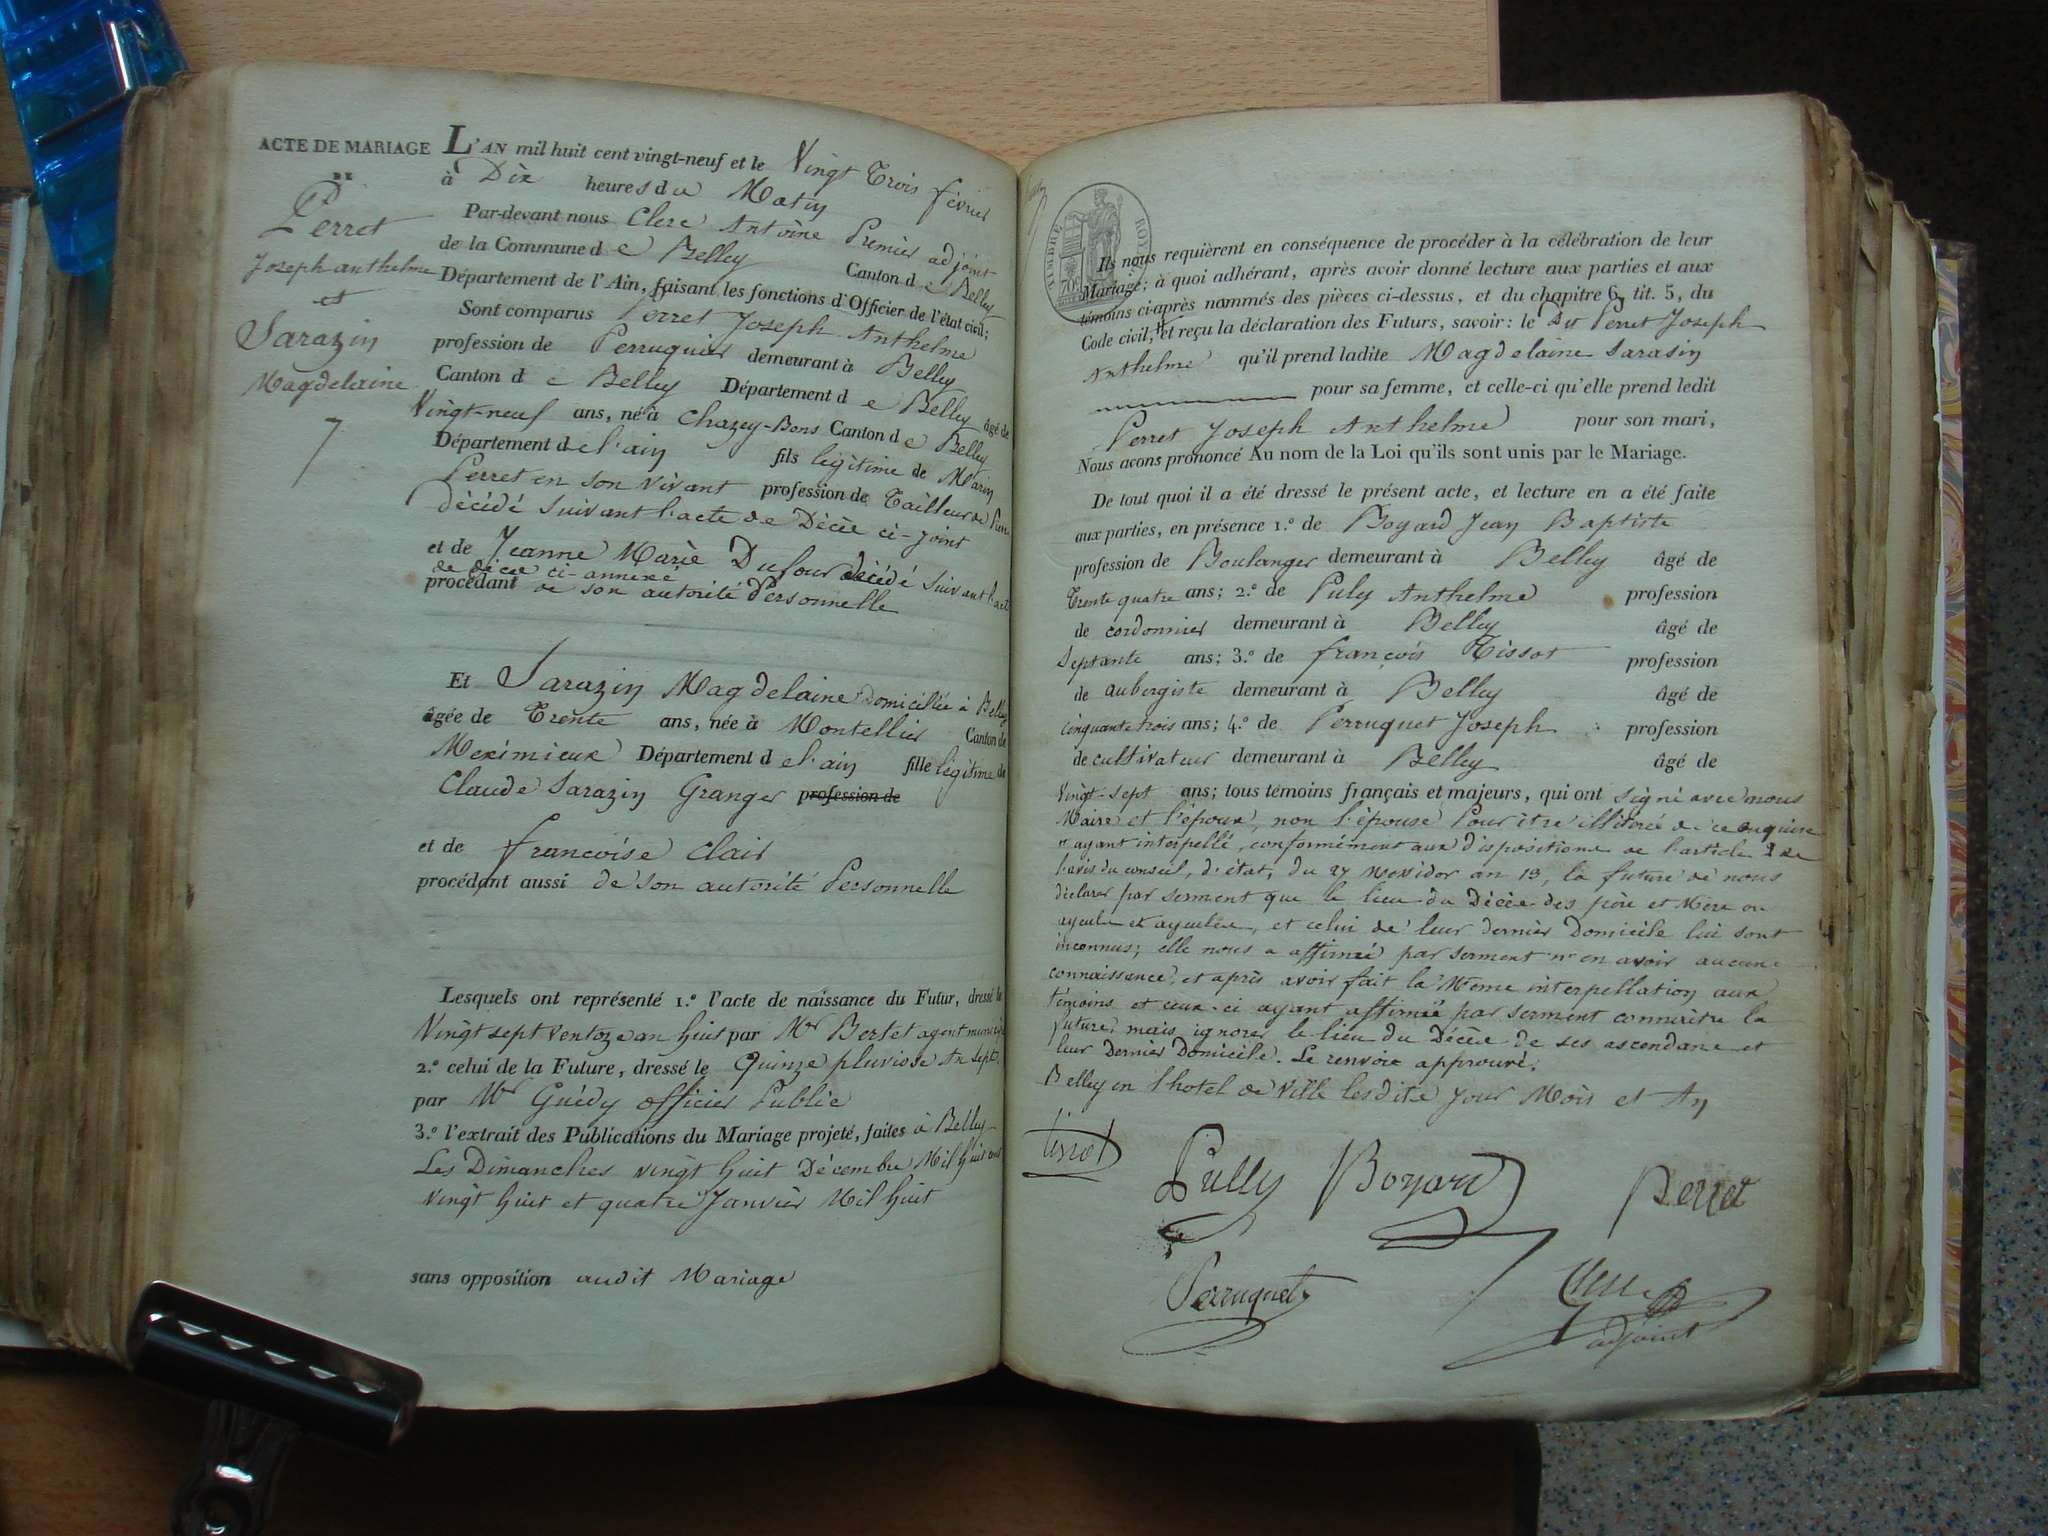 ACTE DE MARIAGE
DE
Perret
Joseph anthelme
et
Sarazin
Magdelaine
7
L'AN mil huit cent vingt-neuf et le Vingt Trois février
à Dix heures du Matin
Par-devant nous Clerc Antoine Premier adjoint
de la Commune de Belley Canton de Belley
Département de l'Ain, faisant les fonctions d'Officier de l'état civil;
Sont comparus Perret Joseph Anthelme
profession de Perruquier demeurant à Belley
Canton de Belley Département de Belley âgé de
Vingt-neuf ans, né à Chazey-Bons Canton de Belley
Département de l'ain fils légitime de Marin
Perret en son vivant profession de Tailleur de
décédé suivant l'acte de Décès ci-joint
et de Jeanne Marie Dufour décédé suivant l'acte
de décès ci-annexé
procédant de son autorité Personnelle
Et Sarazin Magdelaine domiciliée à Belley
âgée de Trente ans, née à Montellier Canton de
Meximieux Département de l'ain fille légitime de
Claude Sarazin Granger profession de
et de francoise Clair
procédant aussi de son autorité Personnelle
Lesquels ont représenté 1.º l'acte de naissance du Futur, dressé le
Vingt sept Ventoze an huit par Mr Bertet agent municipal
2.º celui de la Future, dressé le Quinze pluviose An sept
par Mr Guédy officier Public
3.º l'extrait des Publications du Mariage projeté, faites à Belley
Les Dimanches vingt huit Décembre Mil huit cent
vingt huit et quatre Janvier Mil huit
sans opposition audit Mariage
TIMBRE ROYAL
70c
Ils nous requièrent en conséquence de procéder à la célébration de leur
Mariage; à quoi adhérant, après avoir donné lecture aux parties et aux
témoins ci-après nommés des pièces ci-dessus, et du chapitre 6, tit. 5, du
Code civil, et reçu la déclaration des Futurs, savoir: le Dit Perret Joseph
Anthelme qu'il prend ladite Magdelaine Sarasin
pour sa femme, et celle-ci qu'elle prend ledit
Perret Joseph Anthelme pour son mari,
Nous avons prononcé Au nom de la Loi qu'ils sont unis par le Mariage.
De tout quoi il a été dressé le présent acte, et lecture en a été faite
aux parties, en présence 1.º de Boyard Jean Baptiste
profession de Boulanger demeurant à Belley âgé de
Trente quatre ans; 2.º de Puly Anthelme profession
de cordonnier demeurant à Belley âgé de
Septante ans; 3.º de françois Tissot profession
de aubergiste demeurant à Belley âgé de
cinquante trois ans; 4.º de Perruquet Joseph profession
de cultivateur demeurant à Belley âgé de
Vingt-sept ans; tous témoins français et majeurs, qui ont signé avec nous
Maire et l'époux, non l'épouse Pour être illitérée de ce enquise
ayant interpellé, conformément aux dispositions de l'article 2 de
l'avis du conseil, d'état, du 27 Messidor an 13, la future de nous
déclarer par serment que le lieu du Décès des père et Mère ou
ayeuls et ayeules, et celui de leur dernier Domicile lui sont
inconnus; elle nous a affirmé par serment n'en avoir aucune
connaissance, et après avoir fait la Même interpellation aux
témoins et ceux-ci ayant affirmé par serment connaitre la
future, mais ignorer le lieu du Décès de ses ascendans et
leur Dernier Domicile. Le renvoie approuvé.
Belley en l'hotel de Ville lesdits Jour Mois et An
tissot Pully Boyard Perret
Perruquet Clerc
adjoint